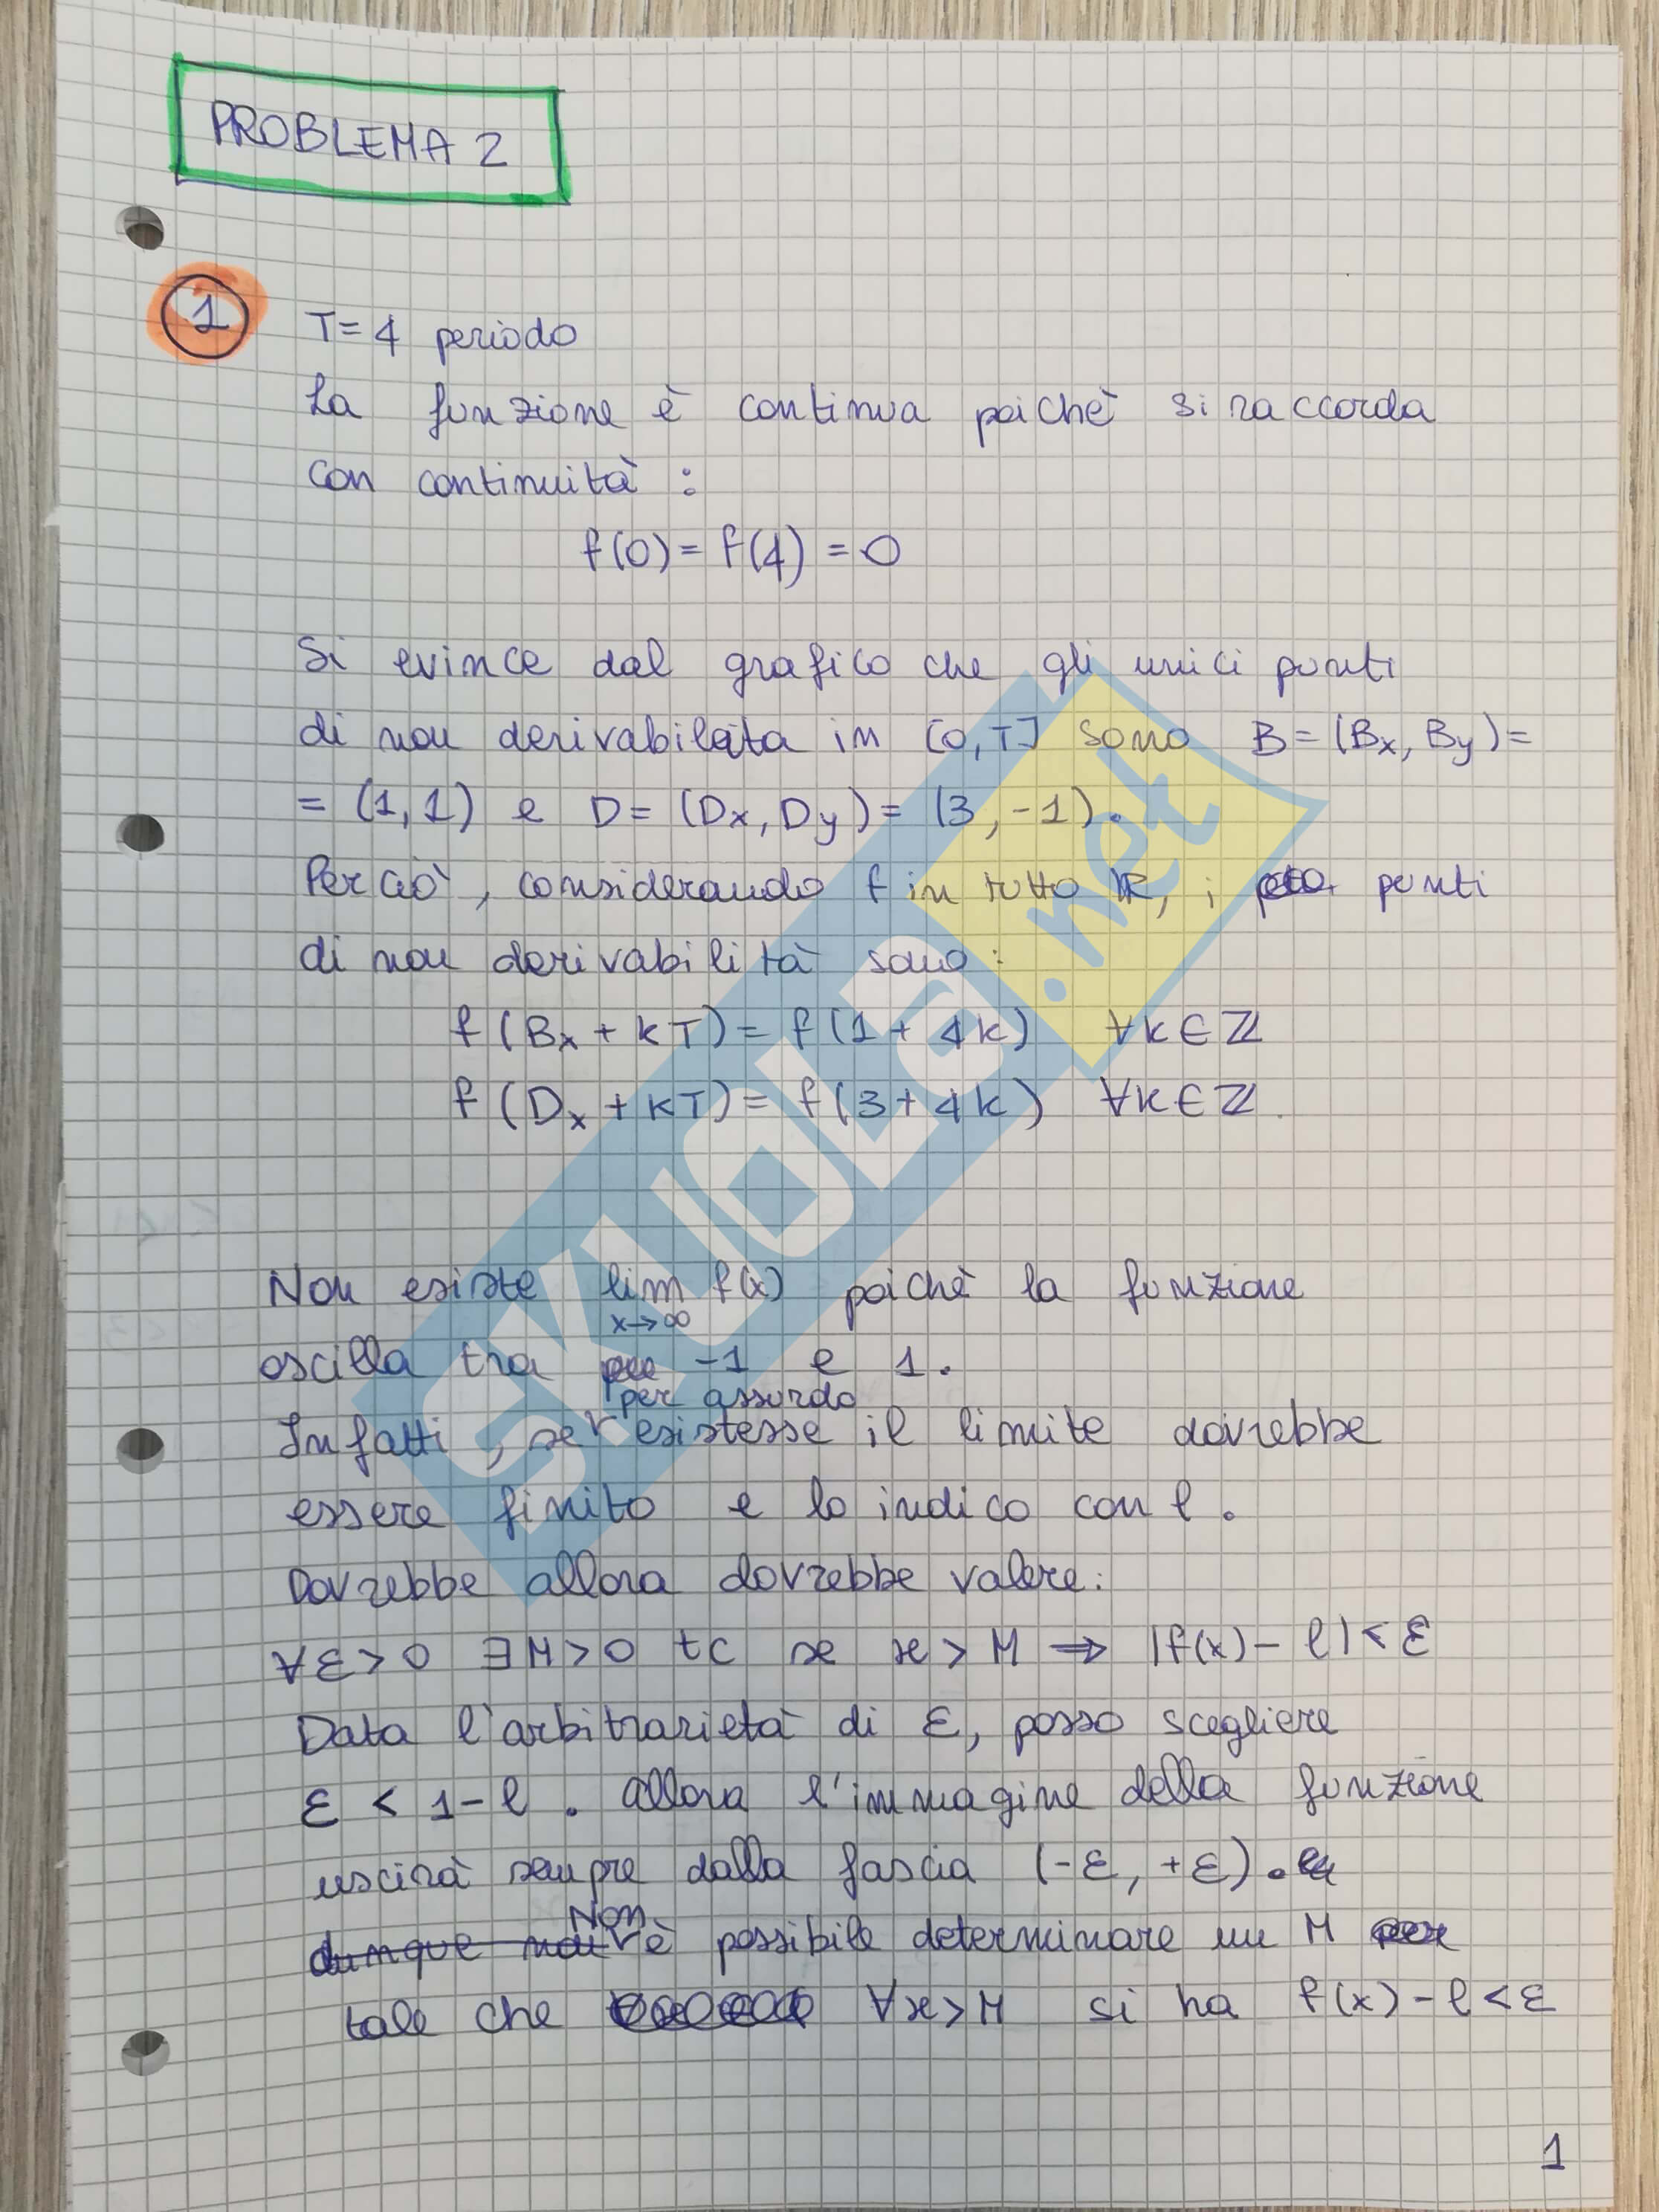 PROBLEMA 2
1
T=4 periodo
La funzione è continua poichè si raccorda
con continuità :
f(0) = f(4) = 0
Si evince dal grafico che gli unici punti
di non derivabilita in [0,T] sono B = (Bx, By) =
= (1,1) e D = (Dx, Dy) = (3,-1).
Perciò, considerando f in tutto ℝ, i punti
di non derivabilità sono:
f (Bx + kT) = f(1 + 4k) ∀k∈ℤ
f (Dx + kT) = f(3 + 4k) ∀k∈ℤ.
Non esiste lim f(x) poichè la funzione
x→∞
oscilla tra -1 e 1.
per assurdo
Infatti, se esistesse il limite dovrebbe
essere finito e lo indico con l.
Dovrebbe allora dovrebbe valere:
∀ε>0 ∃M>0 tc se x>M ⇒ |f(x)-l|<ε
Data l'arbitrarietà di ε, posso scegliere
ε < 1-l. allora l'immagine della funzione
uscirà sempre dalla fascia (-ε, +ε).
Non
dunque è possibile determinare un M
tale che ∀x>M si ha f(x)-l<ε
1
SKUOLA.net